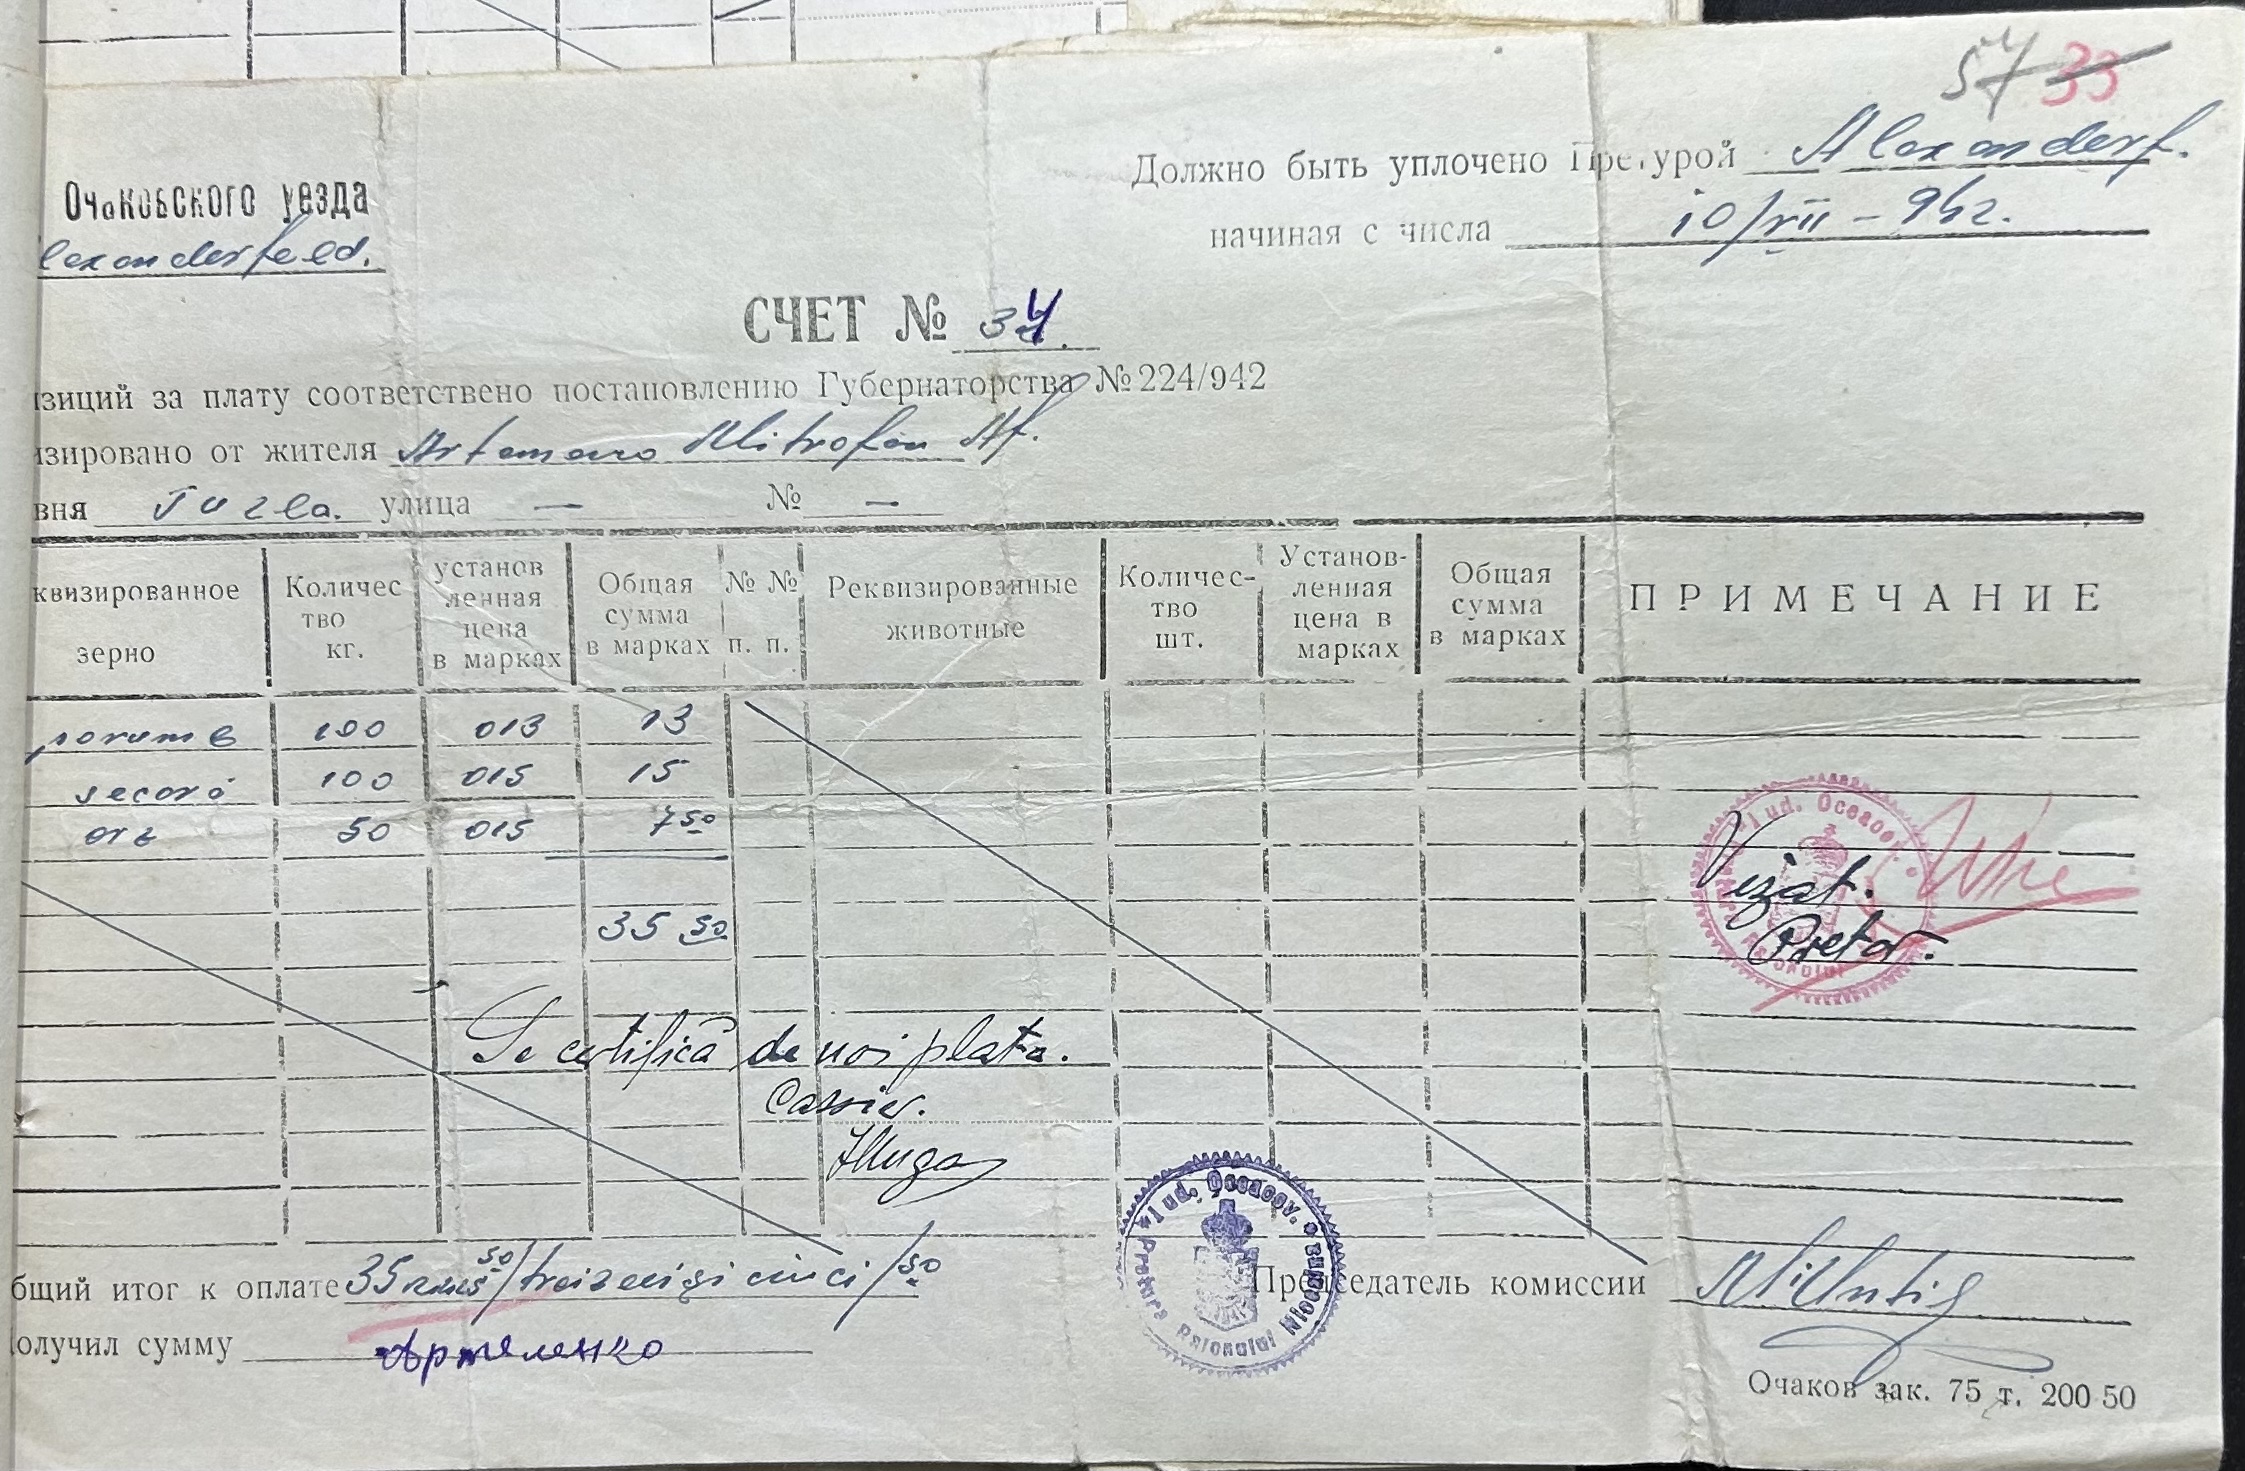 57 33
Должно быть уплочено Претурой Alexanderf.
Очаковского уезда
начиная с числа 10/VII - 942.
lexanderfeld.
СЧЕТ № 34.
изиций за плату соответствено постановлению Губернаторства №224/942
изировано от жителя Mitrofan Af.
вня Tuzla. улица — № —
квизированное зерно Количес тво кг. установ ленная цена в марках Общая сумма в марках №№ п. п. Реквизированные животные Количес- тво шт. Установ- ленная цена в марках Общая сумма в марках ПРИМЕЧАНИЕ
porumb 100 013 13
secară 100 015 15
orz 50 015 7 50
35 50
Vizat.
Pretor.
Se certifică de noi plata.
Cassier.
Jud. Oceacov. Pretura Raionului
Jud. Oceacov. Pretura Raionului
бщий итог к оплате 35 50/treizecişi cinci/50
Председатель комиссии
олучил сумму Артеменко
Очаков зак. 75 т. 200 50